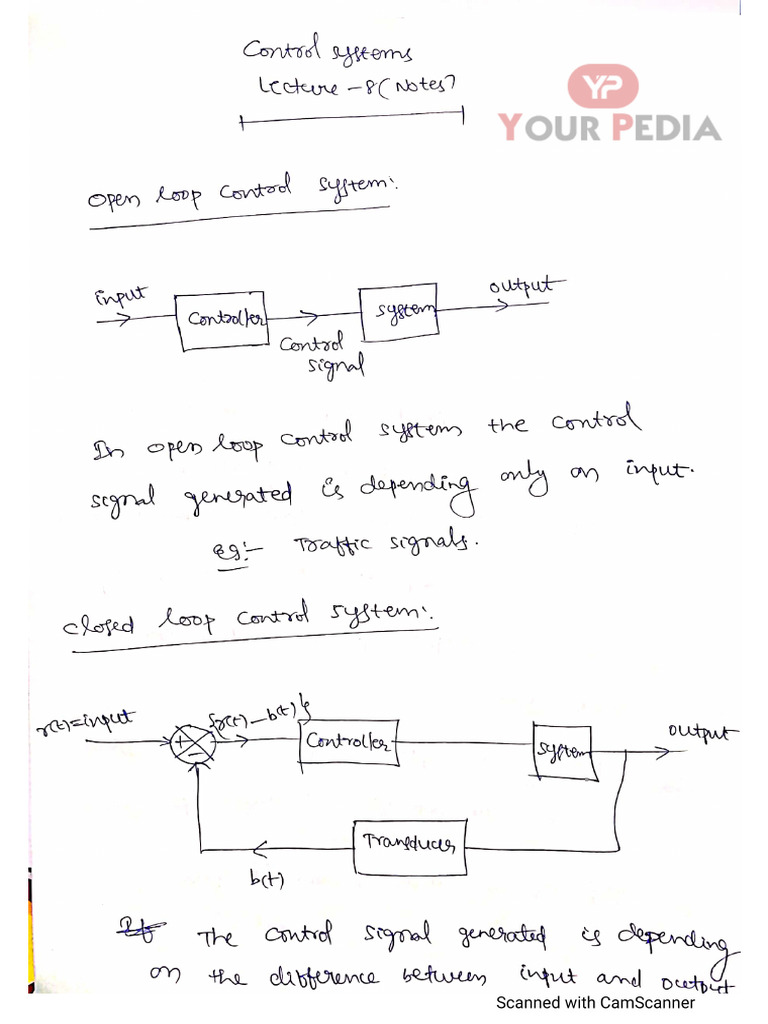 Control systems
Lecture - 8 (Notes)
YP
YOUR PEDIA
open loop control system:
input
Controller
control
signal
system
output
In open loop control system the control
signal generated is depending only on input.
Eg:- Traffic signals.
closed loop control system:
r(t)=input
+
-
{r(t)-b(t)}
Controller
system
output
Transducer
b(t)
The control signal generated is depending
on the difference between input and output
Scanned with CamScanner